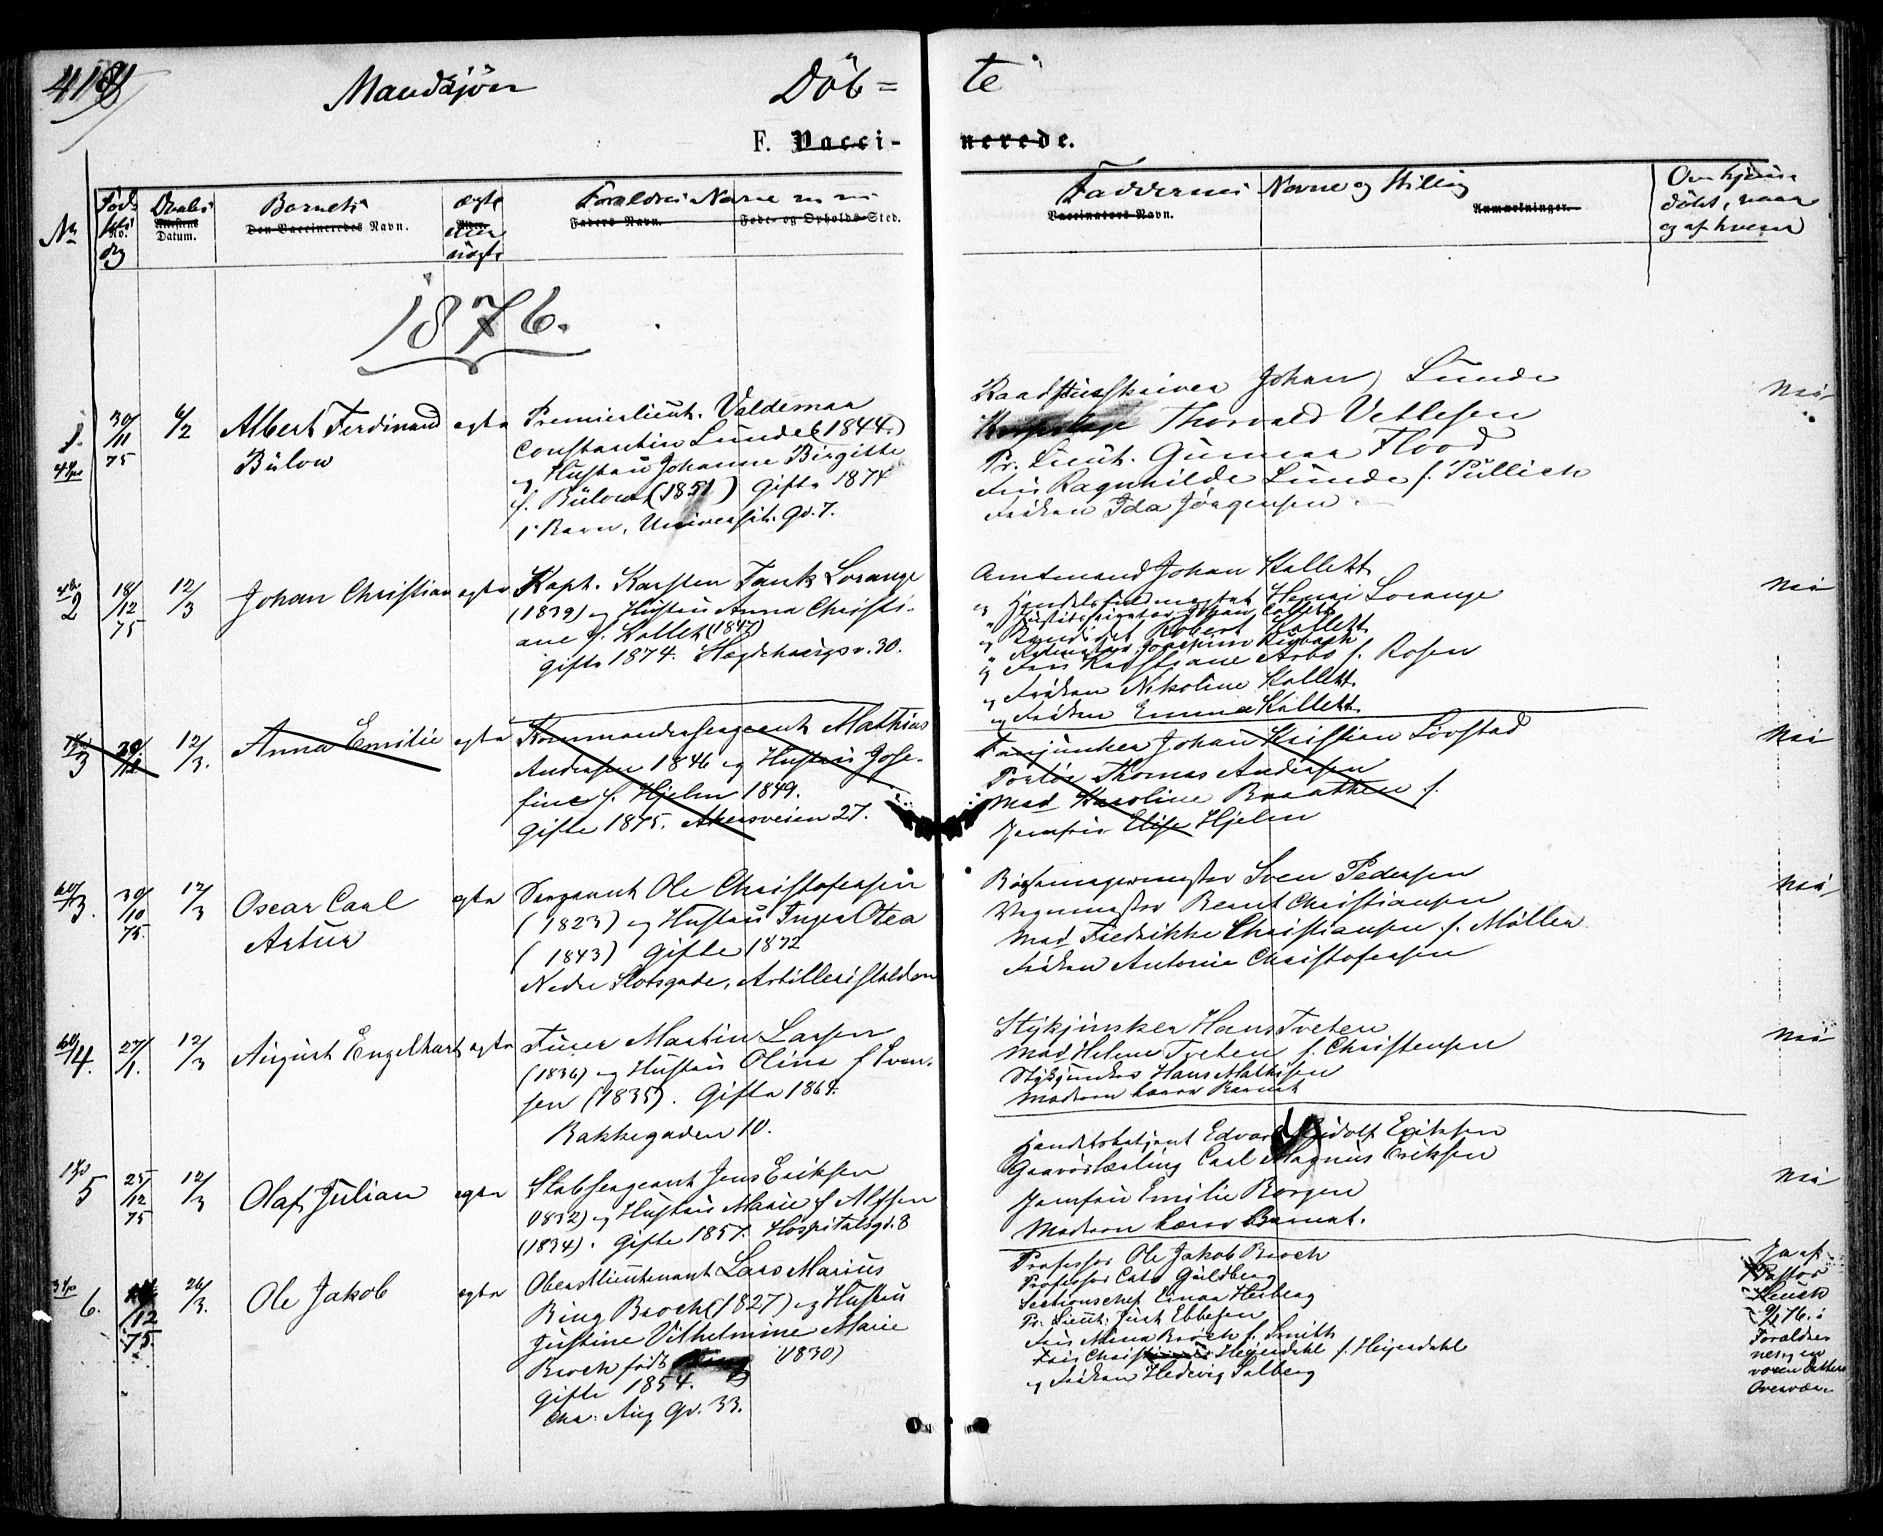 418
Mandkjön Döb= te
F. Vacci- nerede.
No
Föd.
No.
Daabs
Datum.
Barnets
Den Vaccineredes Navn.
ægte
eller
uægte
Forældres Navne
Faders Navn. Føde- og Opholds-Sted.
Faddernes Navne og Stilling
Vaccinators Navn. Anmærkninger.
Om hjemme
döbt, naar
og af hvem
1876.
1.
30/11 75
6/2
Albert Ferdinand
Bülow
egte
Premierlieut. Valdemar
Constantin Lunde (1844.)
og Hustru Johanne Birgitte
f. Bülow (1851) Gifte 1874
1 Barn, Universit. Gd. 7.
Raadstuskriver Johan Lunde
Thorvald Vetlesen
Pr. Lieut. Gunnar Flood
Fru Ragnhilde Lunde f. Püllich
Fröken Ida Jörgensen
Nei
2
18/12 75
12/3
Johan Christian
egte
Kapt. Karsten Tank Lorange
(1839) og Hustru Anna Christi-
ane f. Kollett (1847)
gifte 1874. Hegdehaugsv. 30.
Amtmand Johan Kollett
og Handelsfuldmægtig Henri Lorange
Johan Collett
og Kandidat Robert Kollett
" Rittmester Joachim
og Fru Kristiane Arbo f. Rosen
og Fröken Nikoline Kollett
og Fröken Emma Kollett
Nei
3
12/3.
Anna Emilie
egte
Kommandersergeant Mathias
Andersen 1846 og Hustru Jose-
fine f. Hjelm 1849.
Gifte 1875. Akersveien 27.
Fanejunker Johan Kristian Lövstad
Portör Thomas Andersen
Mad Karoline Braathen f.
Jomfru Elise Hjelm
Nei
3.
30/10 75.
12/3
Oscar Carl
Artur
egte
Sergeant Ole Christofersen
(1823) og Hustru Inger Otea
(1843) Gifte 1872
Nedre Slotsgade, Artilleristalden
Bössemagermester Sven Pedersen
Vognmester Bernt Christiansen
Mad Fredrikke Christiansen f. Möller
Fröken Antonie Christofersen
Nei
4.
27/1.
12/3
August Engelhart
egte
Furer Martin Larsen
(1836) og Hustru Olina f Sven-
sen (1835). Gifte 1864.
Bakkegaden 10.
Stykjunker Hans Tveten
Mad Helene Tveten f. Christensen
Stykjunker Hans Mathisen
Moderen bærer Barnet
Nei
5
25/12 75
12/3
Olaf Julian
egte
Stabsergeant Jens Eriksen
(1832) og Hustru Marie f Alfsen
(1834). Gifte 1857. Hospitalsgd. 8
Handelsbetjent Edvard Rudolf Eriksen
Gravörlærling Carl Magnus Eriksen
Jomfru Emilie Borgen
Moderen bærer Barnet.
Nei
6.
/12 75.
26/3.
Ole Jakob
egte
Oberstlieutenant Lars Marius
Bing Broch (1827) og Hustru
Justine Vilhelmine Marie
Broch födt (1830)
Gifte 1854.
Chr: Aug Gd. 33.
Professor Ole Jakob Broch
Professor Cato Guldberg
Sectionschef Einar Heiberg
Pr. Lieut. Just Ebbesen
Fru Mina Broch f. Smith
Fru Heyerdahl f. Heyerdahl
og Fröken Hedevig Salberg
Ja af
Pastor
/2 76. i
Foraldre
nes og en
voxen Datters
Overvær.